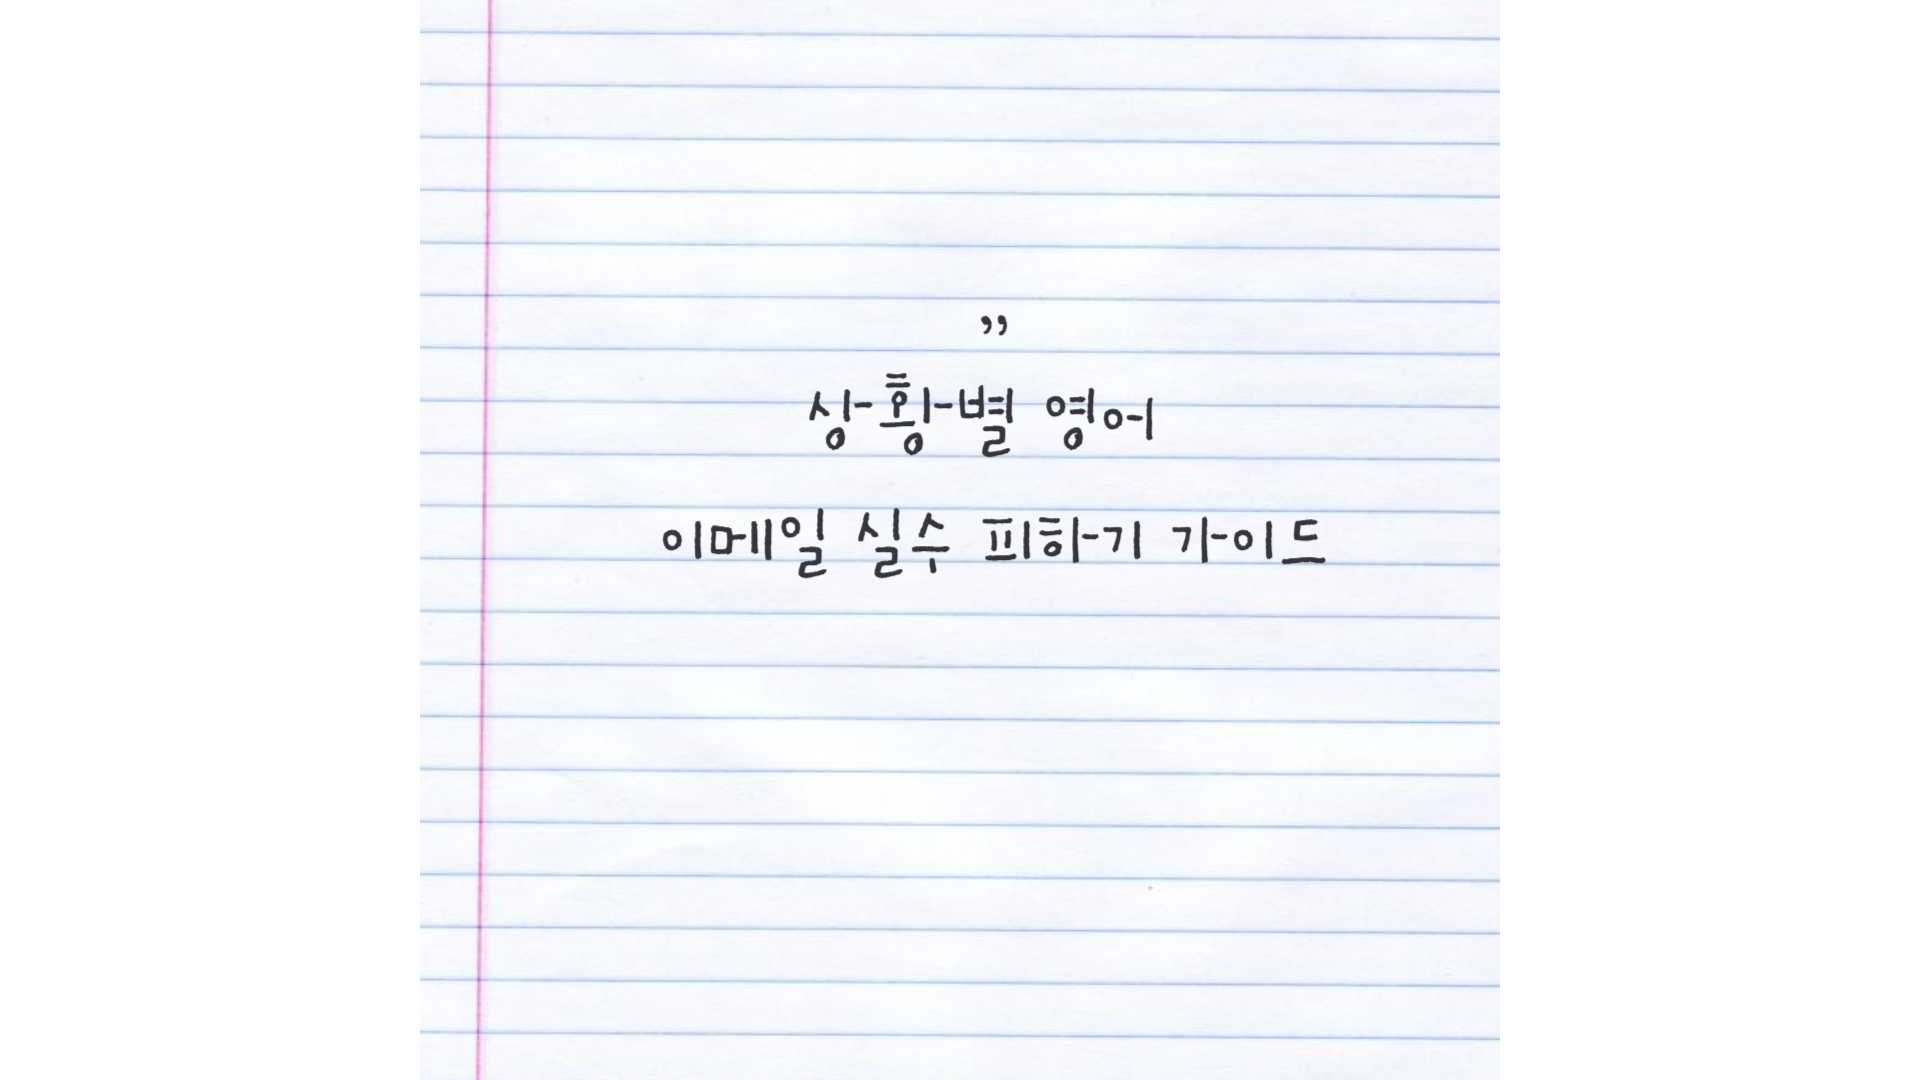 ”
상황별 영어
이메일 실수 피하기 가이드